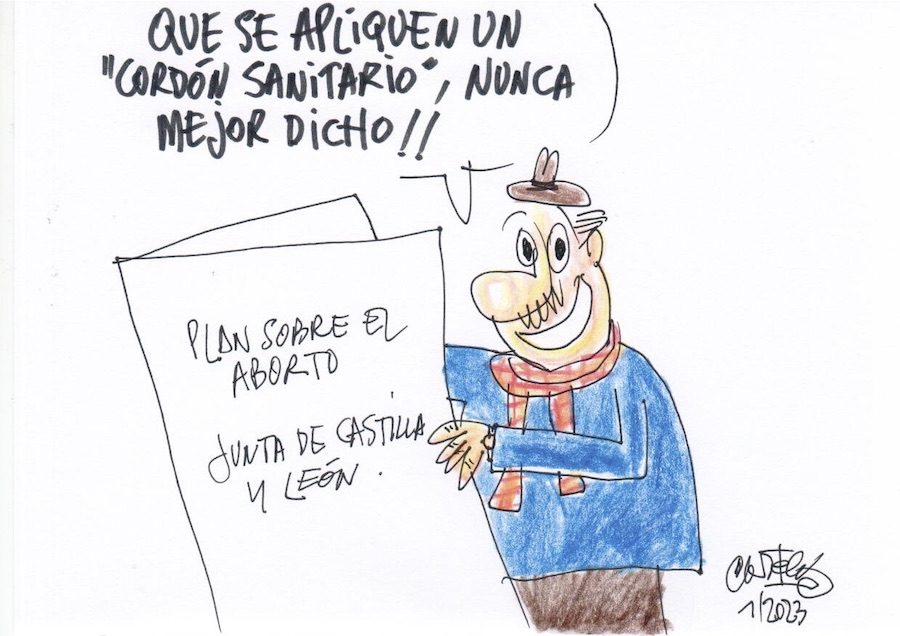 QUE SE APLIQUEN UN
"CORDÓN SANITARIO", NUNCA
MEJOR DICHO!!
PLAN SOBRE EL
ABORTO
JUNTA DE CASTILLA
Y LEÓN.
1/2023